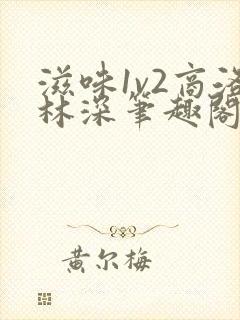 滋味1v2高洛
林深笔趣阁
黄尔梅